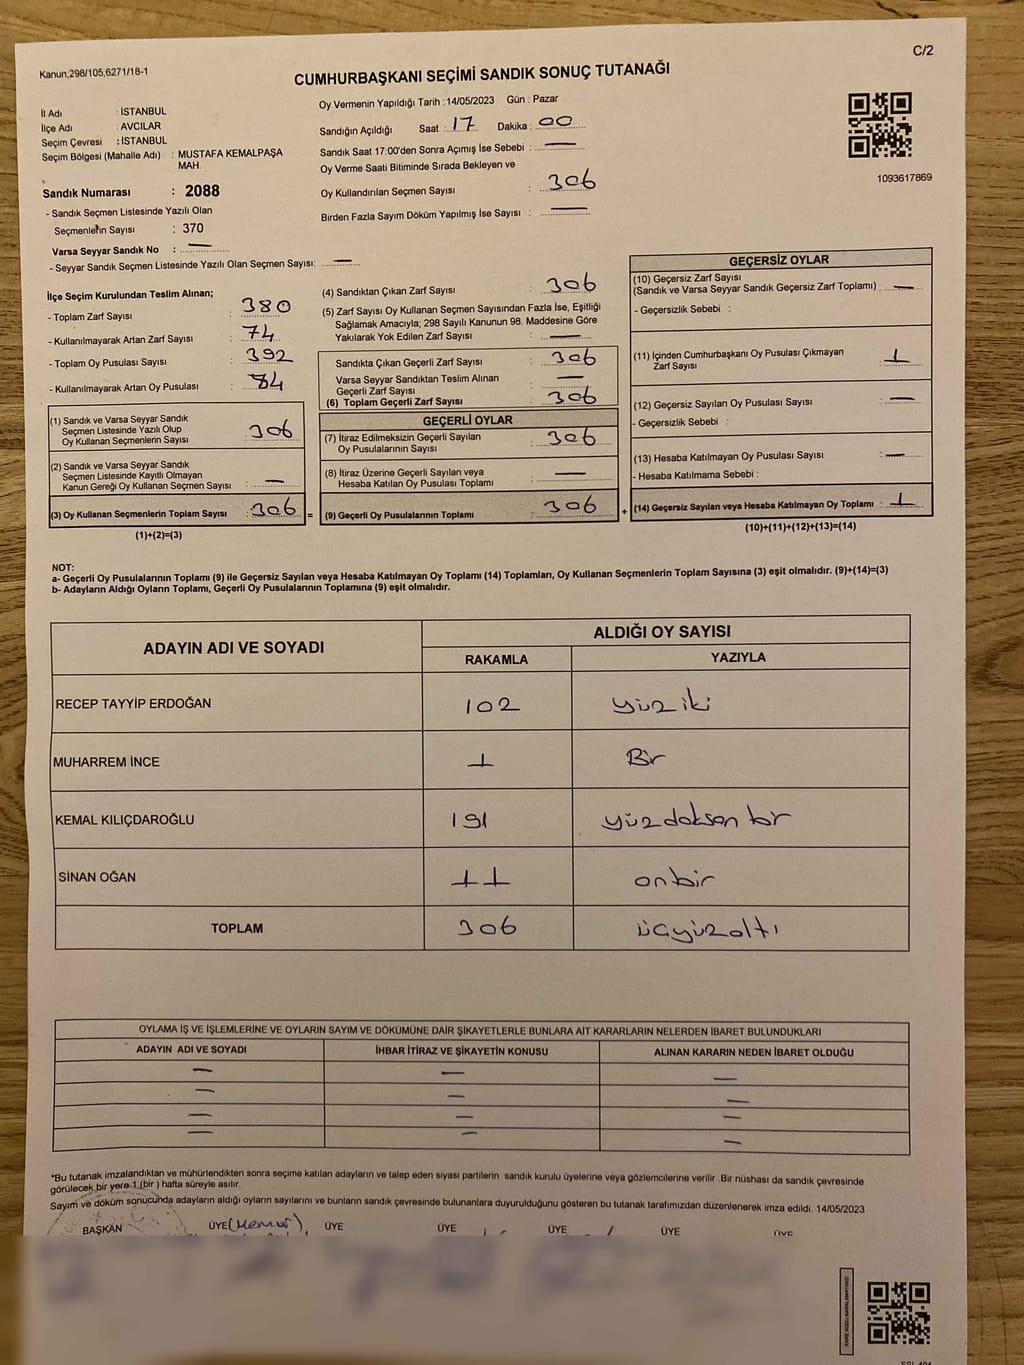 C/2
Kanun;298/105,6271/18-1
CUMHURBAŞKANI SEÇİMİ SANDIK SONUÇ TUTANAĞI
İl Adı : İSTANBUL
İlçe Adı : AVCILAR
Seçim Çevresi : İSTANBUL
Seçim Bölgesi (Mahalle Adı) : MUSTAFA KEMALPAŞA
MAH.
Sandık Numarası : 2088
- Sandık Seçmen Listesinde Yazılı Olan
Seçmenlerin Sayısı : 370
Varsa Seyyar Sandık No : —
- Seyyar Sandık Seçmen Listesinde Yazılı Olan Seçmen Sayısı: —
Oy Vermenin Yapıldığı Tarih : 14/05/2023 Gün : Pazar
Sandığın Açıldığı Saat : 17 Dakika : 00
Sandık Saat 17:00'den Sonra Açımış İse Sebebi : —
Oy Verme Saati Bitiminde Sırada Bekleyen ve
Oy Kullandırılan Seçmen Sayısı : 306
Birden Fazla Sayım Döküm Yapılmış İse Sayısı : —
1093617869
İlçe Seçim Kurulundan Teslim Alınan;
- Toplam Zarf Sayısı : 380
- Kullanılmayarak Artan Zarf Sayısı : 74
- Toplam Oy Pusulası Sayısı : 392
- Kullanılmayarak Artan Oy Pusulası : 84
(1) Sandık ve Varsa Seyyar Sandık
Seçmen Listesinde Yazılı Olup
Oy Kullanan Seçmenlerin Sayısı : 306
(2) Sandık ve Varsa Seyyar Sandık
Seçmen Listesinde Kayıtlı Olmayan
Kanun Gereği Oy Kullanan Seçmen Sayısı : —
(3) Oy Kullanan Seçmenlerin Toplam Sayısı : 306 =
(1)+(2)=(3)
(4) Sandıktan Çıkan Zarf Sayısı : 306
(5) Zarf Sayısı Oy Kullanan Seçmen Sayısından Fazla İse, Eşitliği
Sağlamak Amacıyla; 298 Sayılı Kanunun 98. Maddesine Göre
Yakılarak Yok Edilen Zarf Sayısı : —
Sandıkta Çıkan Geçerli Zarf Sayısı : 306
Varsa Seyyar Sandıktan Teslim Alınan
Geçerli Zarf Sayısı : —
(6) Toplam Geçerli Zarf Sayısı : 306
GEÇERLİ OYLAR
(7) İtiraz Edilmeksizin Geçerli Sayılan
Oy Pusulalarının Sayısı : 306
(8) İtiraz Üzerine Geçerli Sayılan veya
Hesaba Katılan Oy Pusulası Toplamı : —
(9) Geçerli Oy Pusulalarının Toplamı : 306 +
GEÇERSİZ OYLAR
(10) Geçersiz Zarf Sayısı
(Sandık ve Varsa Seyyar Sandık Geçersiz Zarf Toplamı) : —
- Geçersizlik Sebebi :
(11) İçinden Cumhurbaşkanı Oy Pusulası Çıkmayan
Zarf Sayısı : 1
(12) Geçersiz Sayılan Oy Pusulası Sayısı : —
- Geçersizlik Sebebi :
(13) Hesaba Katılmayan Oy Pusulası Sayısı : —
- Hesaba Katılmama Sebebi :
(14) Geçersiz Sayılan veya Hesaba Katılmayan Oy Toplamı : 1
(10)+(11)+(12)+(13)=(14)
NOT:
a- Geçerli Oy Pusulalarının Toplamı (9) ile Geçersiz Sayılan veya Hesaba Katılmayan Oy Toplamı (14) Toplamları, Oy Kullanan Seçmenlerin Toplam Sayısına (3) eşit olmalıdır. (9)+(14)=(3)
b- Adayların Aldığı Oyların Toplamı, Geçerli Oy Pusulalarının Toplamına (9) eşit olmalıdır.
ADAYIN ADI VE SOYADI ALDIĞI OY SAYISI
RAKAMLA YAZIYLA
RECEP TAYYİP ERDOĞAN 102 yüz iki
MUHARREM İNCE 1 Bir
KEMAL KILIÇDAROĞLU 191 yüzdoksan bir
SİNAN OĞAN 11 onbir
TOPLAM 306 üçyüzaltı
OYLAMA İŞ VE İŞLEMLERİNE VE OYLARIN SAYIM VE DÖKÜMÜNE DAİR ŞİKAYETLERLE BUNLARA AİT KARARLARIN NELERDEN İBARET BULUNDUKLARI
ADAYIN ADI VE SOYADI İHBAR İTİRAZ VE ŞİKAYETİN KONUSU ALINAN KARARIN NEDEN İBARET OLDUĞU
— — —
— — —
— — —
— — —
*Bu tutanak imzalandıktan ve mühürlendikten sonra seçime katılan adayların ve talep eden siyasi partilerin sandık kurulu üyelerine veya gözlemcilerine verilir .Bir nüshası da sandık çevresinde
görülecek bir yere 1 (bir) hafta süreyle asılır.
Sayım ve döküm sonucunda adayların aldığı oyların sayılarını ve bunların sandık çevresinde bulunanlara duyurulduğunu gösteren bu tutanak tarafımızdan düzenlenerek imza edildi. 14/05/2023
BAŞKAN ÜYE (Memur) ÜYE ÜYE ÜYE ÜYE ÜYE